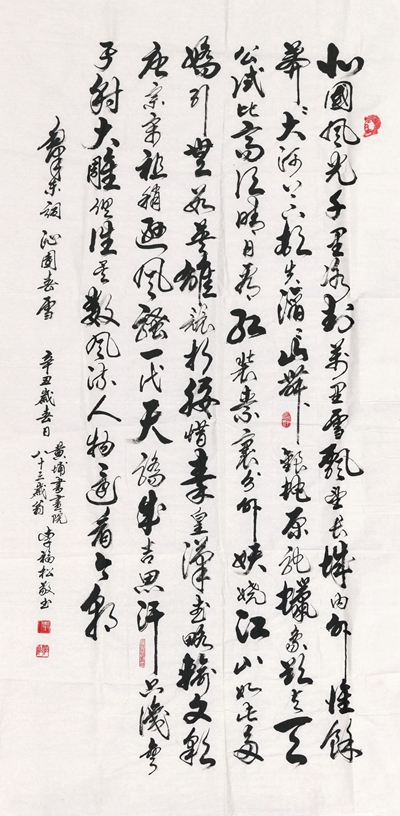 北國風光千里冰封萬里雪飄望長城內外惟餘
莽〻大河上下頓失滔〻山舞銀蛇原馳蠟象欲與天
公試比高須晴日看紅裝素裹分外妖嬈江山如此多
嬌引無數英雄競折腰惜秦皇漢武略輸文彩
唐宗宋祖稍遜風騷一代天驕成吉思汗只識彎
弓射大雕俱往矣數風流人物還看今朝
毛澤東詞 沁園春雪 辛丑歲春日
黃埔書畫院
八十三歲翁 李福松敬書